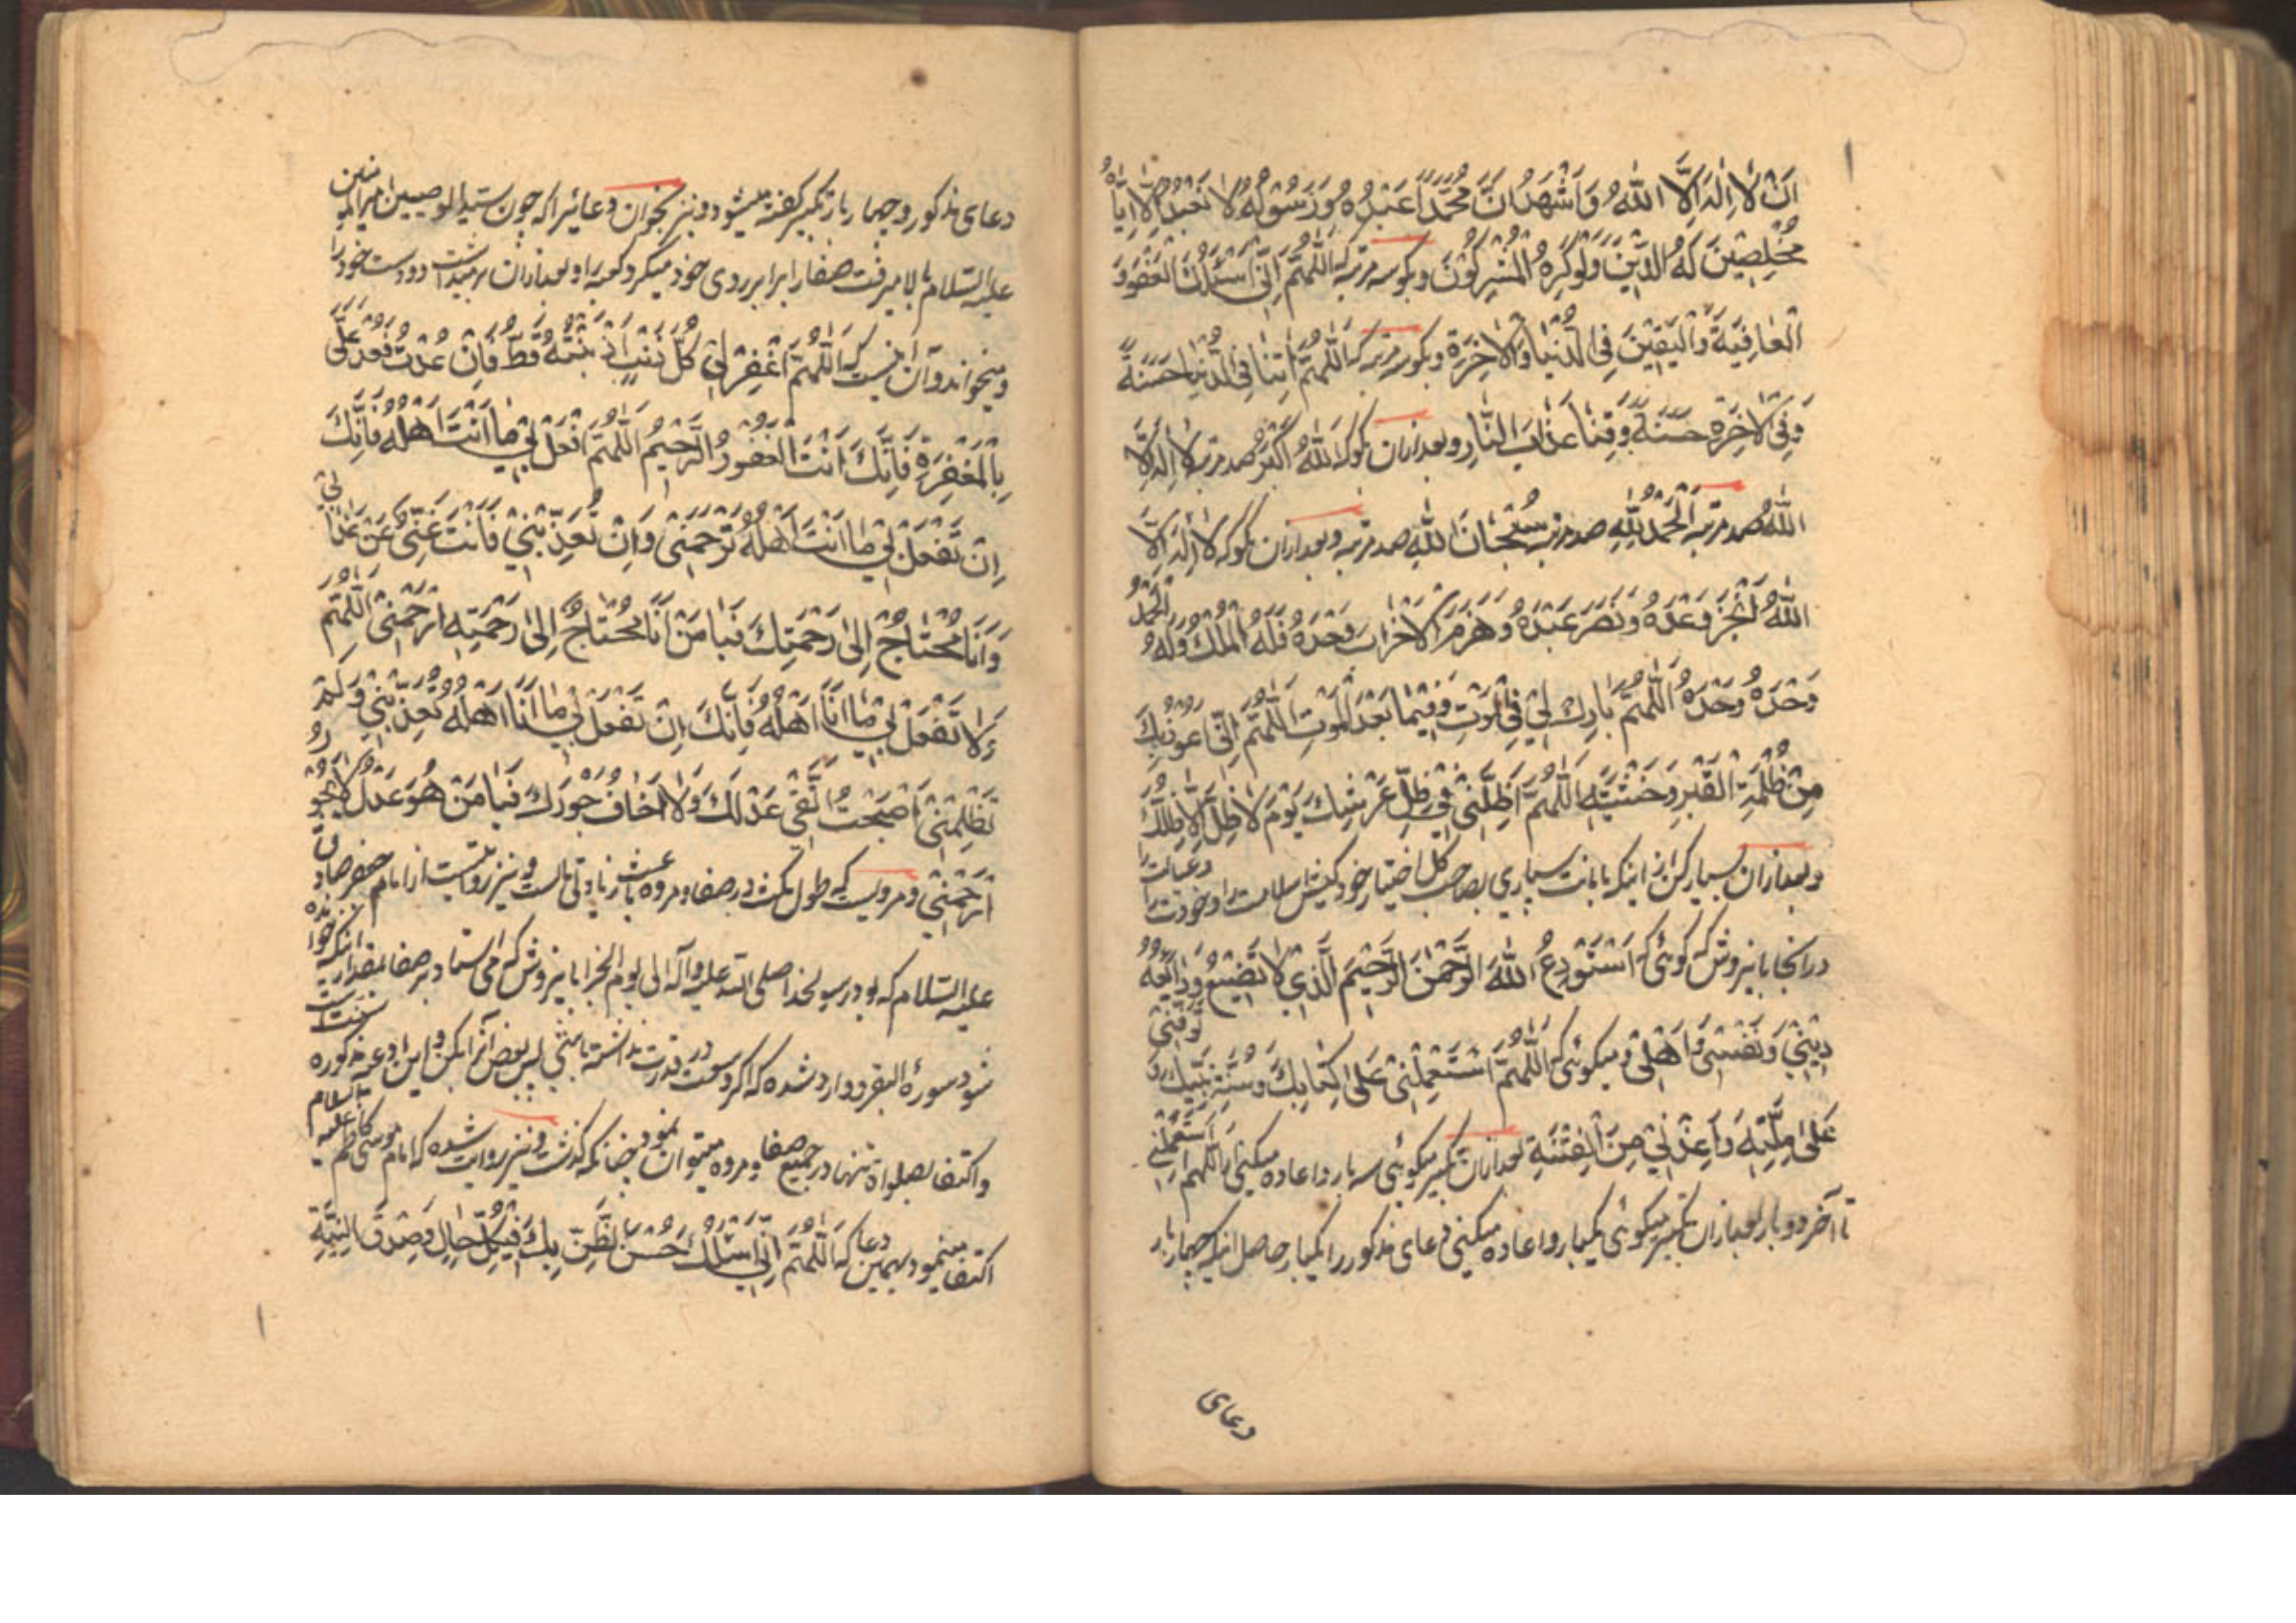 اَنْ لَا اِلٰهَ اِلَّا اللّٰهُ وَاَشْهَدُ اَنَّ مُحَمَّدًا عَبْدُهُ وَرَسُولُهُ لَا نَعْبُدُ اِلَّا اِيَّاهُ
مُخْلِصِينَ لَهُ الدِّينَ وَلَوْ كَرِهَ الْمُشْرِكُونَ وبگو سه مرتبه كه اَللّٰهُمَّ اِنِّي اَسْئَلُكَ الْعَفْوَ وَ
الْعَافِيَةَ وَالْيَقِينَ فِي الدُّنْيَا وَالْآخِرَةِ وبگو سه مرتبه كه اَللّٰهُمَّ آتِنَا فِي الدُّنْيَا حَسَنَةً
وَفِي الْآخِرَةِ حَسَنَةً وَقِنَا عَذَابَ النَّارِ وبعد از ان بگو كه اَللّٰهُ اَكْبَرُ صد مرتبه لَا اِلٰهَ اِلَّا
اللّٰهُ صد مرتبه اَلْحَمْدُ لِلّٰهِ صد مرتبه سُبْحَانَ اللّٰهِ صد مرتبه وبعد از ان بگو كه لَا اِلٰهَ اِلَّا
اللّٰهُ اَنْجَزَ وَعْدَهُ وَنَصَرَ عَبْدَهُ وَهَزَمَ الْاَحْزَابَ وَحْدَهُ فَلَهُ الْمُلْكُ وَلَهُ الْحَمْدُ
وَحْدَهُ وَحْدَهُ اَللّٰهُمَّ بَارِكْ لِي فِي الْمَوْتِ وَفِيمَا بَعْدَ الْمَوْتِ اَللّٰهُمَّ اِنِّي اَعُوذُ بِكَ
مِنْ ظُلْمَةِ الْقَبْرِ وَحْشَتِهِ اَللّٰهُمَّ اَظِلَّنِي فِي ظِلِّ عَرْشِكَ يَوْمَ لَا ظِلَّ اِلَّا ظِلُّكَ
وبعد از ان بسيار كن از اينكه بامانت بسپاري بصاحب كل اختيار خود كيش اسلامت را وخودت را وعيالت را
در انجا باينروش كه گوئى كه اَسْتَوْدِعُ اللّٰهَ الرَّحْمٰنَ الرَّحِيمَ الَّذِي لَا تَضِيعُ وَدَائِعُهُ
دِينِي وَنَفْسِي وَاَهْلِي وميگوئى كه اَللّٰهُمَّ اسْتَعْمِلْنِي عَلٰى كِتَابِكَ وَسُنَّةِ نَبِيِّكَ وَ تَوَفَّنِي
عَلٰى مِلَّتِهِ وَاَعِذْنِي مِنَ الْفِتْنَةِ بعد از ان تكبير ميگوئى سه بار واعاده ميكنى اَللّٰهُمَّ اسْتَعْمِلْنِي
تا آخر دو بار بعد از ان تكبير ميگوئى يكبار واعاده ميكنى دعاى مذكور را يكبار حاصل اينكه چهار بار
دعاى
دعاى مذكور وچهار بار تكبير گفته ميشود ونيز بخوان دعائيرا كه چون سيد الوصيين امير المؤمنين
عليه السلام بالا ميرفت صفا را برابر روى خود ميكرد كعبه را وبعد از ان بر ميداشت دو دست خود را
وميخواند وآن اينست كه اَللّٰهُمَّ اغْفِرْ لِي كُلَّ ذَنْبٍ اَذْنَبْتُهُ قَطُّ فَاِنْ عُدْتُ فَعُدْ عَلَيَّ
بِالْمَغْفِرَةِ فَاِنَّكَ اَنْتَ الْغَفُورُ الرَّحِيمُ اَللّٰهُمَّ افْعَلْ بِي مَا اَنْتَ اَهْلُهُ فَاِنَّكَ
اِنْ تَفْعَلْ بِي مَا اَنْتَ اَهْلُهُ تَرْحَمْنِي وَاِنْ تُعَذِّبْنِي فَاَنْتَ غَنِيٌّ عَنْ عَذَابِي
وَاَنَا مُحْتَاجٌ اِلٰى رَحْمَتِكَ فَيَا مَنْ اَنَا مُحْتَاجٌ اِلٰى رَحْمَتِهِ ارْحَمْنِي اَللّٰهُمَّ
وَلَا تَفْعَلْ بِي مَا اَنَا اَهْلُهُ فَاِنَّكَ اِنْ تَفْعَلْ بِي مَا اَنَا اَهْلُهُ تُعَذِّبْنِي وَلَمْ
تَظْلِمْنِي اَصْبَحْتُ اَتَّقِي عَدْلَكَ وَلَا اَخَافُ جَوْرَكَ فَيَا مَنْ هُوَ عَدْلٌ لَا يَجُورُ
ارْحَمْنِي ومرويست كه طول مكث در صفا ومروه باعث زيادتى مالست ونيز روايتست از امام جعفر صادق
عليه السلام كه بود رسولخدا صلى الله عليه وآله الى يوم الجزا باينروش كه مى استاد بر صفا بمقدار اينكه خوانده
شود سورة البقره ووارد شده كه اگر وسعت در قدرت نداشته باشى پس بعض آنرا بكن واين ادعيه مذكوره سنت است
واكتفا بصلواة تنها در جميع صفا ومروه ميتوان نمود چنانكه گذشت ونيز روايت شده كه امام موسى كاظم عليه السلام
اكتفا مينمود بهمين دعا كه اَللّٰهُمَّ اِنِّي اَسْئَلُكَ حُسْنَ الظَّنِّ بِكَ فِي كُلِّ حَالٍ وَصِدْقَ النِّيَّةِ